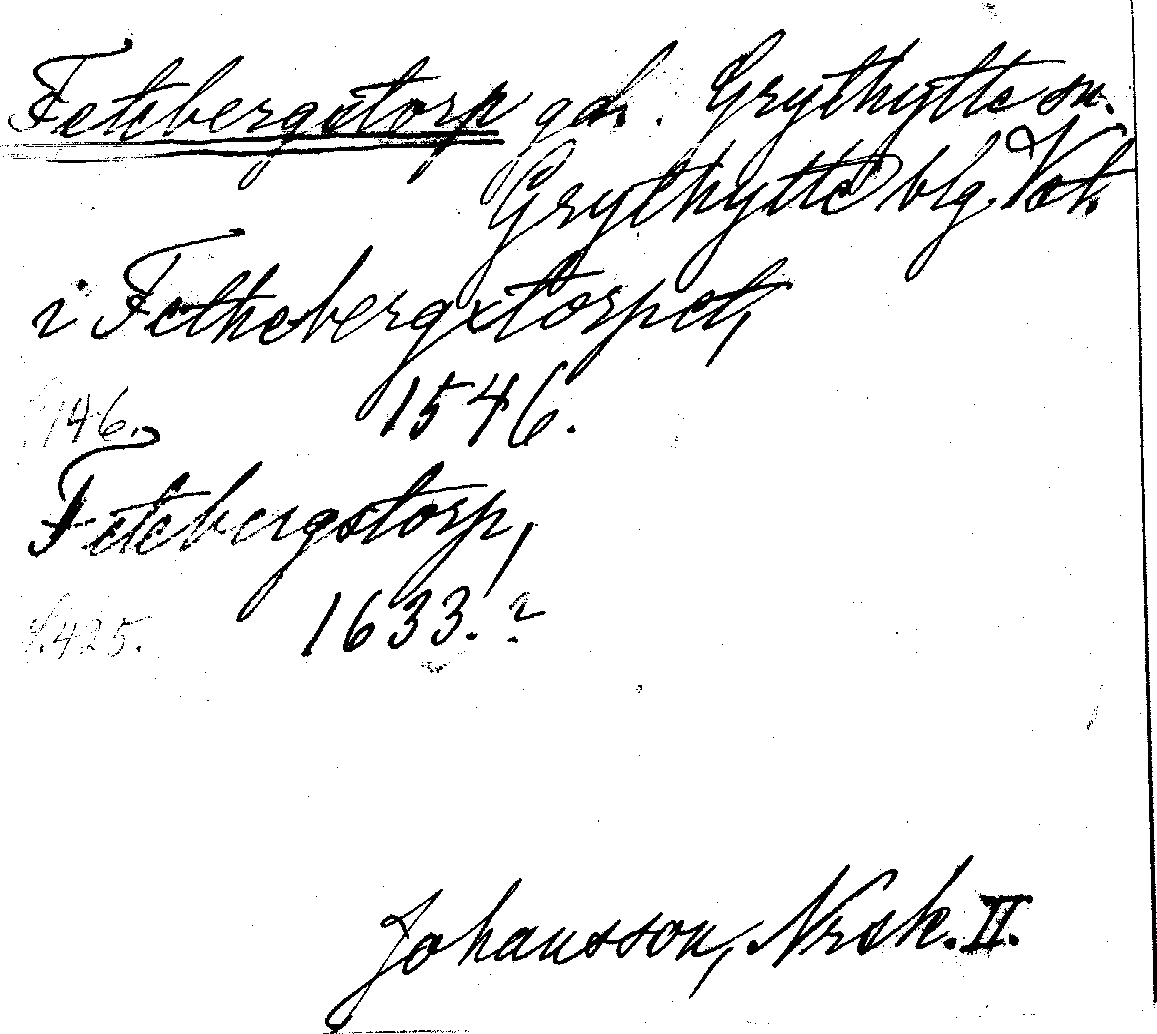 Fetebergstorp gd. Grythytte sn.
Grythytte blg. Vstl.
i Fethebergxtorpet,
s. 146. 1546.
Fetebergstorp,
s. 425. 1633.?
Johansson, Nrsk. II.